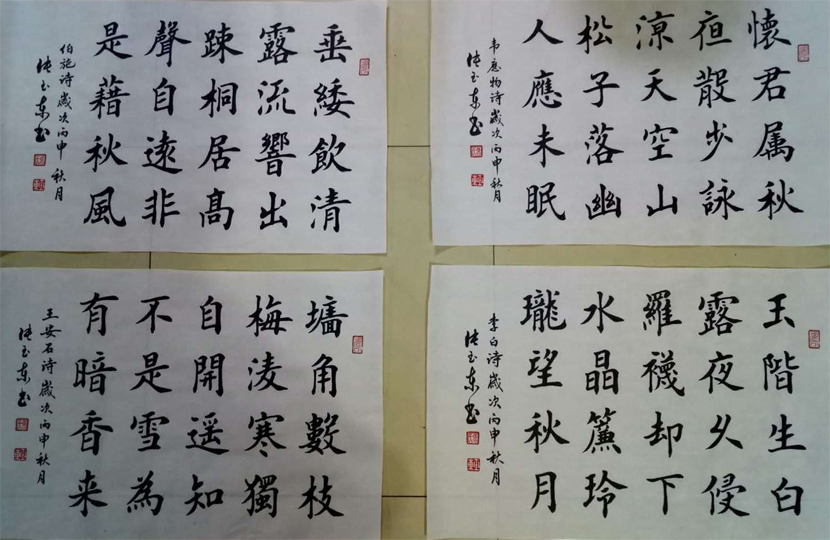 垂緌飲清
露流響出
踈桐居高
聲自遠非
是藉秋風
伯施诗歲次丙申秋月
张玉东书
懷君属秋
夜散步詠
涼天空山
松子落幽
人應未眠
韦應物诗歲次丙申秋月
张玉东书
墻角數枝
梅凌寒獨
自開遥知
不是雪為
有暗香来
王安石诗歲次丙申秋月
张玉东书
玉階生白
露夜久侵
羅襪却下
水晶簾玲
瓏望秋月
李白诗歲次丙申秋月
张玉东书